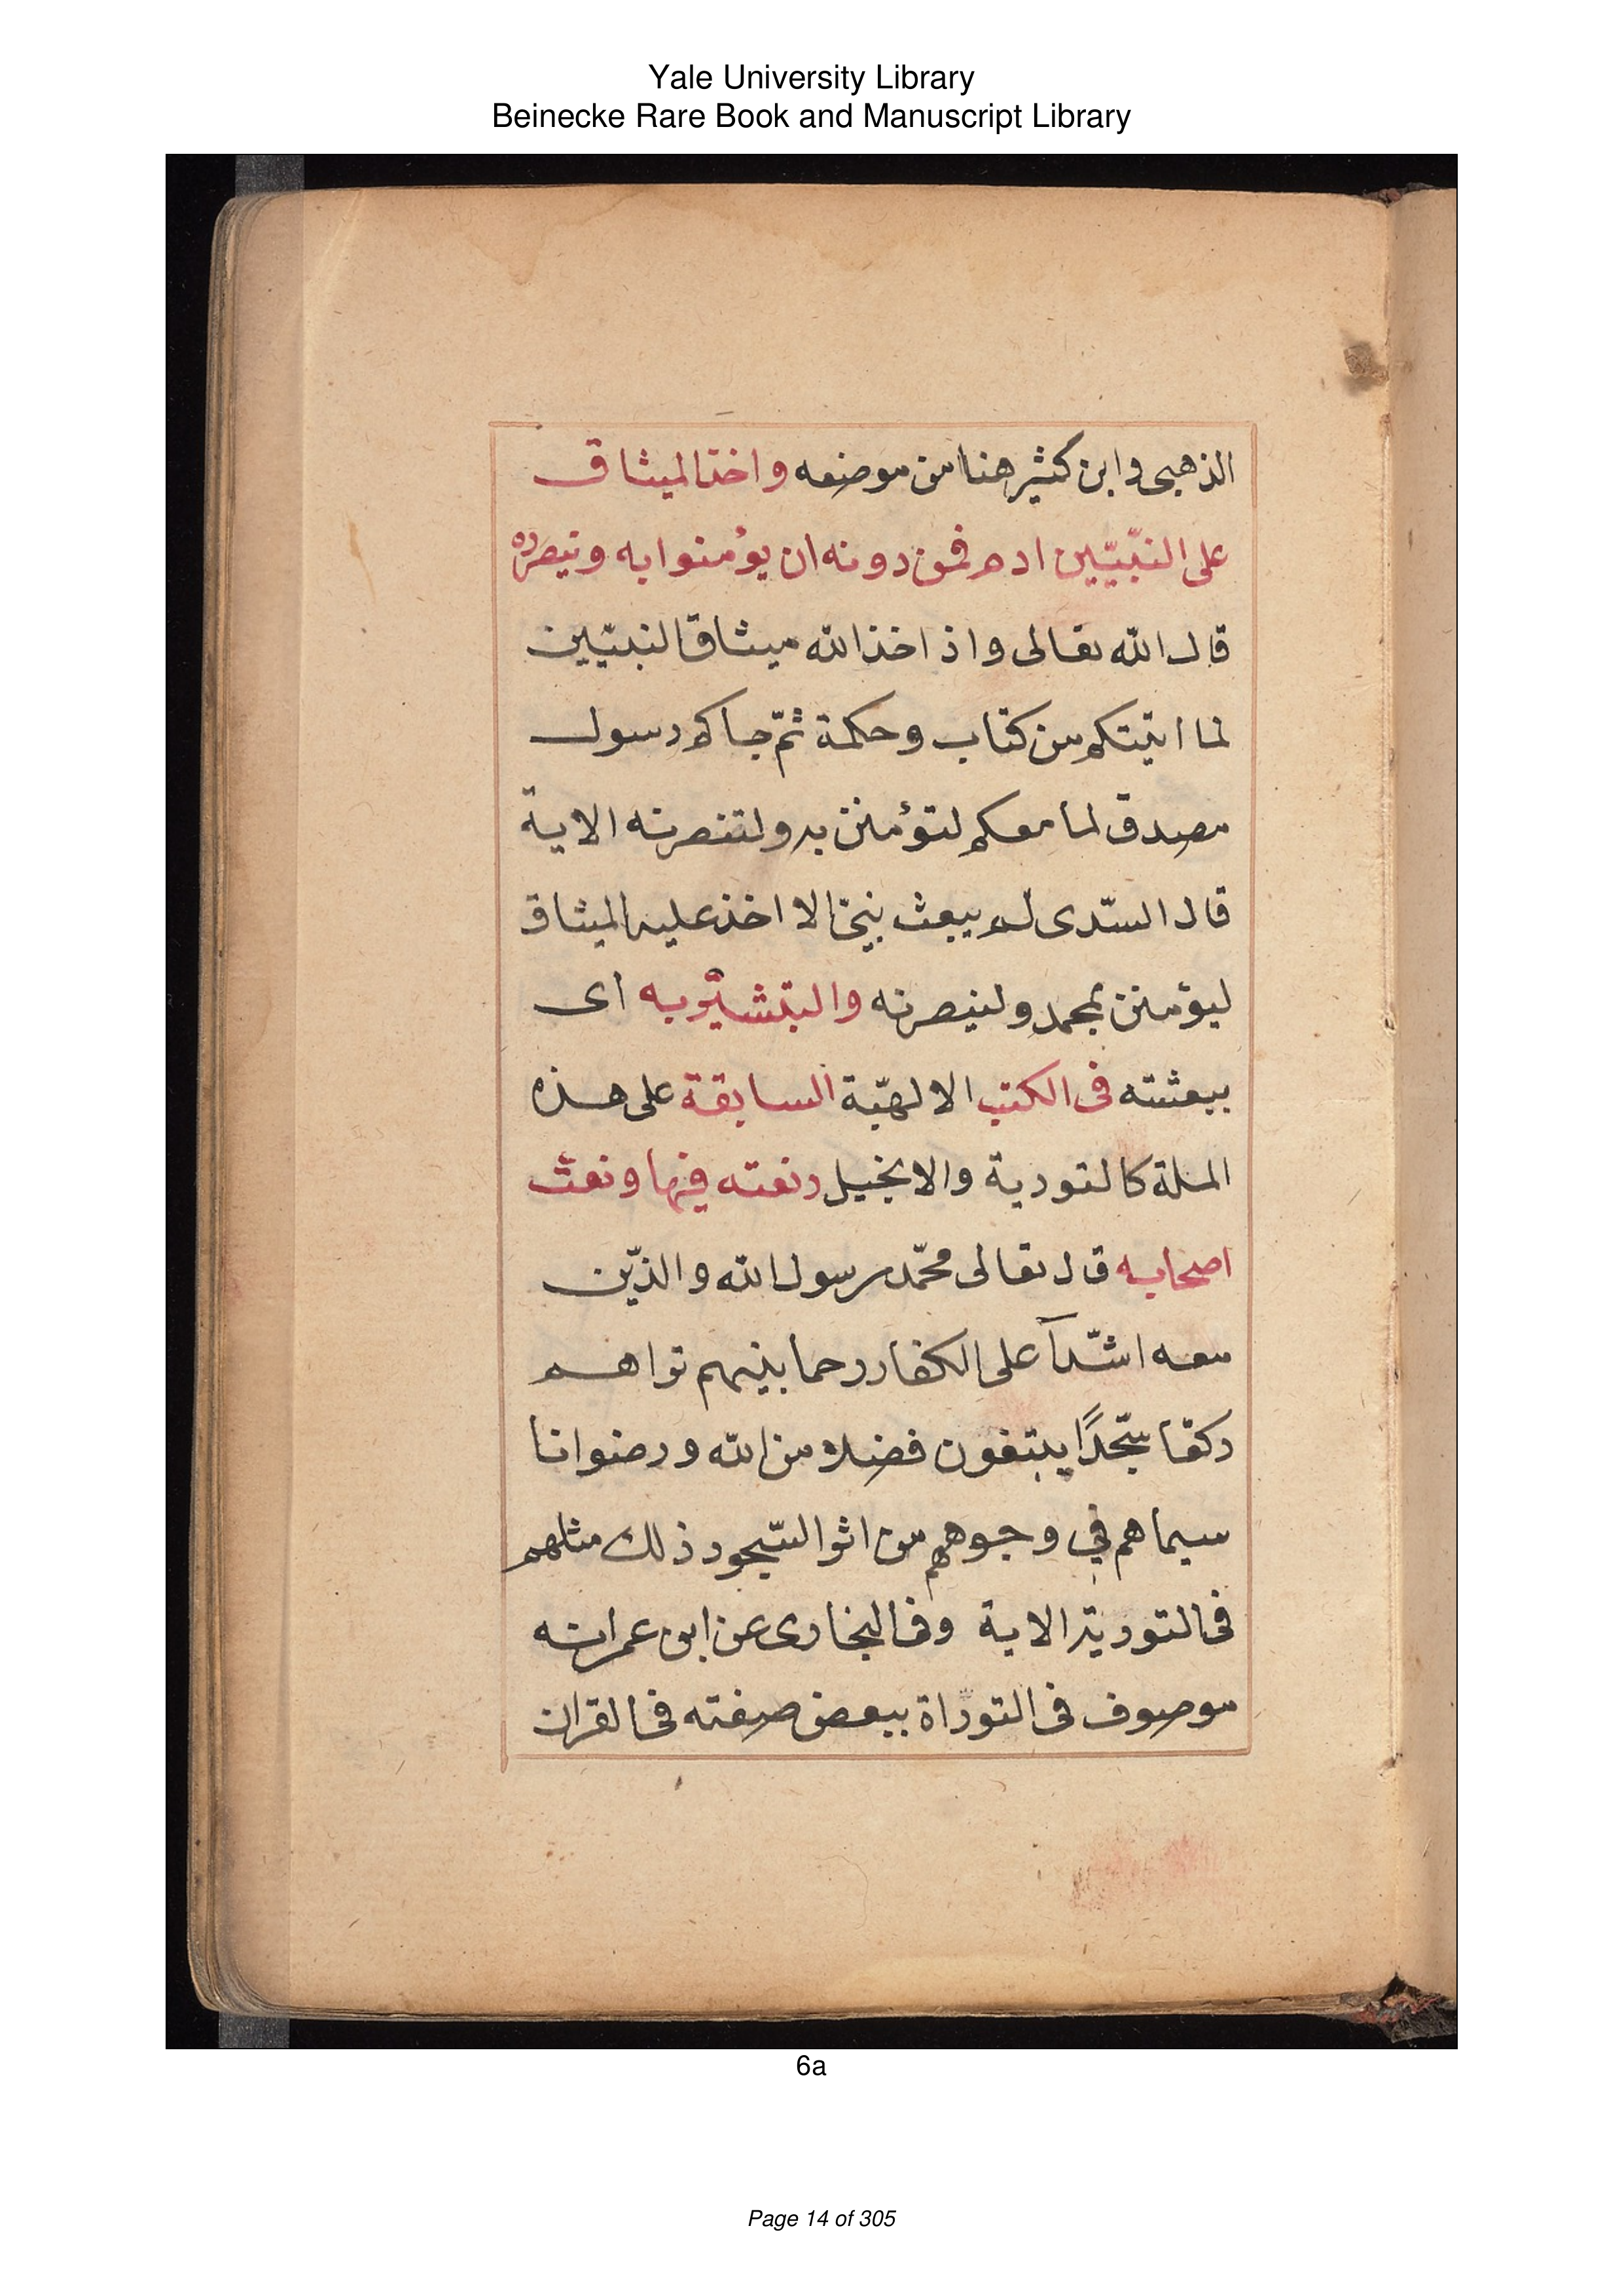 Yale University Library
Beinecke Rare Book and Manuscript Library
الذهبى وابن كثير هنا من موضعه واخذ الميثاق
على النبّيّين ادم فمن دونه ان يؤمنوا به وينصروه
قال الله تعالى واذ اخذ الله ميثاق النبيّين
لما اتيتكم من كتاب وحكمة ثمّ جاكم رسول
مصدق لما معكم لتؤمنن به ولتنصرنه الاية
قال السّدى لم يبعث نبى الا اخذ عليه الميثاق
ليؤمنن بمحمد ولينصرنه والتبشيّر به اى
ببعثته فى الكتب الالهيّة السابقة على هذه
الملة كالتورية والانجيل ونعته فيها ونعت
اصحابه قال تعالى محمّد رسول الله والذّين
معه اشّدآ على الكفار رحما بينهم تراهم
ركعا سّجدًا يبتغون فضلا من الله ورضوانا
سيماهم في وجوههم من اثر السّجود ذلك مثلهم
فى التورية الاية وفى البخارى عن ابن عمر انه
موصوف فى التوراة ببعض صفته فى القران
6a
Page 14 of 305